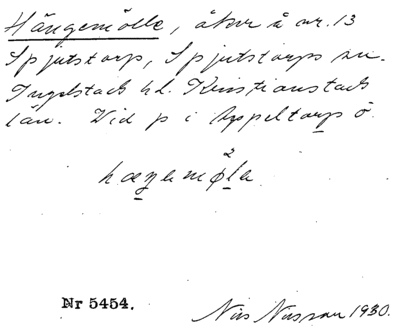 Hängemölle, åker å nr. 13
Spjutstorp, Spjutstorps sn.
Ingelstads hd. Kristianstads
län. Vid p i Appeltorp ö.
hæŋamø²la
Nr 5454.
Nils Nilsson 1930.